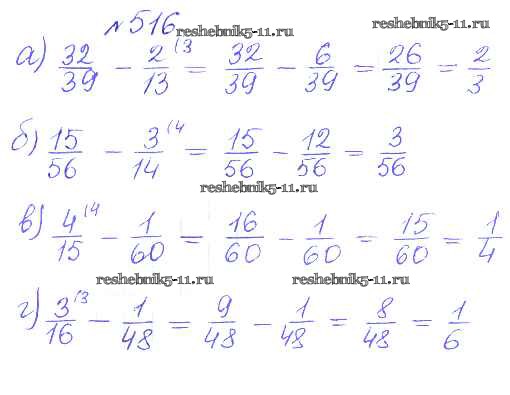 №516
reshebnik5-11.ru
reshebnik5-11.ru
а) 32/39 - 2/13 (3 = 32/39 - 6/39 = 26/39 = 2/3
б) 15/56 - 3/14 (4 = 15/56 - 12/56 = 3/56
reshebnik5-11.ru
в) 4/15 (4 - 1/60 = 16/60 - 1/60 = 15/60 = 1/4
reshebnik5-11.ru
reshebnik5-11.ru
г) 3/16 (3 - 1/48 = 9/48 - 1/48 = 8/48 = 1/6